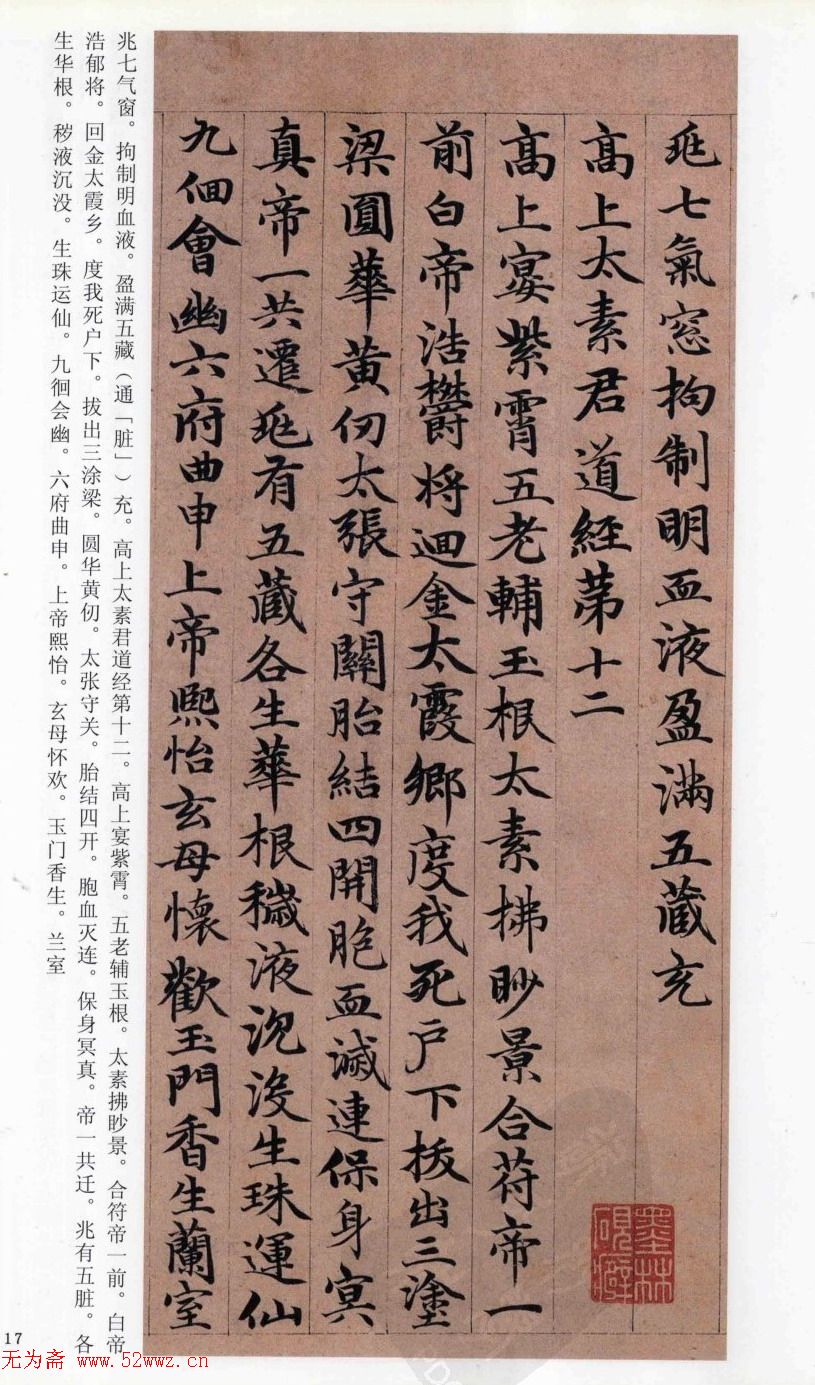 兆七氣窓拘制明血液盈滿五藏充
高上太素君道經第十二
高上宴紫霄五老輔玉根太素拂眇景合苻帝一
前白帝浩欝将迴金太霞鄉度我死户下拔出三塗
梁圓華黄仞太張守關胎結四開胞血滅連保身冥
真帝一共遷兆有五藏各生華根穢液沉沒生珠運仙
九佪會幽六府曲申上帝熈怡玄母懷歡玉門香生蘭室
墨林
硯癖
兆七气窗。拘制明血液。盈满五藏（通「脏」）充。高上太素君道经第十二。高上宴紫霄。五老辅玉根。太素拂眇景。合符帝一前。白帝
浩郁将。回金太霞乡。度我死户下。拔出三涂梁。圆华黄仞。太张守关。胎结四开。胞血灭连。保身冥真。帝一共迁。兆有五脏。各
生华根。秽液沉没。生珠运仙。九徊会幽。六府曲申。上帝熙怡。玄母怀欢。玉门香生。兰室
17
无为斋 www.52wwz.cn